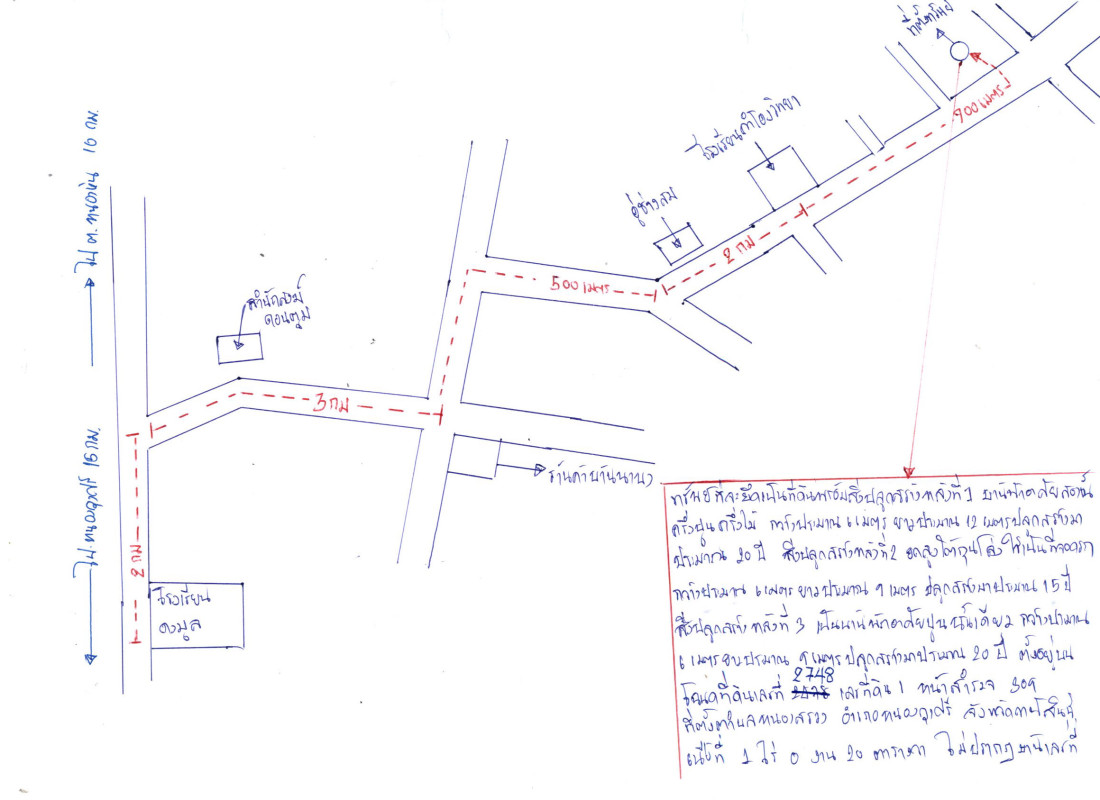 ที่ตั้งทรัพย์
900 เมตร
โรงเรียนคำโองวิทยา
อู่ช่างสม
2 กม
500 เมตร
ไป ต. หนองหิน 10 กม.
สำนักสงฆ์
ดอนตูม
3 กม
ร้านค้า
ไป. หนองกุงศรี 15 กม.
2 กม
โรงเรียน
ดงมูล
ทรัพย์ที่จะยึดเป็นที่ดินพร้อมสิ่งปลูกสร้างหลังที่ 1 บ้านพักอาศัยสองชั้น
ครึ่งปูนครึ่งไม้ กว้างประมาณ 6 เมตร ยาวประมาณ 12 เมตรปลูกสร้างมา
ประมาณ 20 ปี สิ่งปลูกสร้างหลังที่ 2 ยกสูงใต้ถุนโล่ง ใช้เป็นที่จอดรถ
กว้างประมาณ 6 เมตร ยาวประมาณ 9 เมตร ปลูกสร้างมาประมาณ 15 ปี
สิ่งปลูกสร้างหลังที่ 3 เป็นบ้านพักอาศัยปูนชั้นเดียว กว้างประมาณ
6 เมตรยาวประมาณ 9 เมตร ปลูกสร้างมาประมาณ 20 ปี ตั้งอยู่บน
โฉนดที่ดินเลขที่ 2748 เลขที่ดิน 1 หน้าสำรวจ 309
ที่ตั้งตำบลหนองสรวง อำเภอหนองกุงศรี จังหวัดกาฬสินธุ์
เนื้อที่ 1 ไร่ 0 งาน 20 ตารางวา ไม่ปรากฏบ้านเลขที่